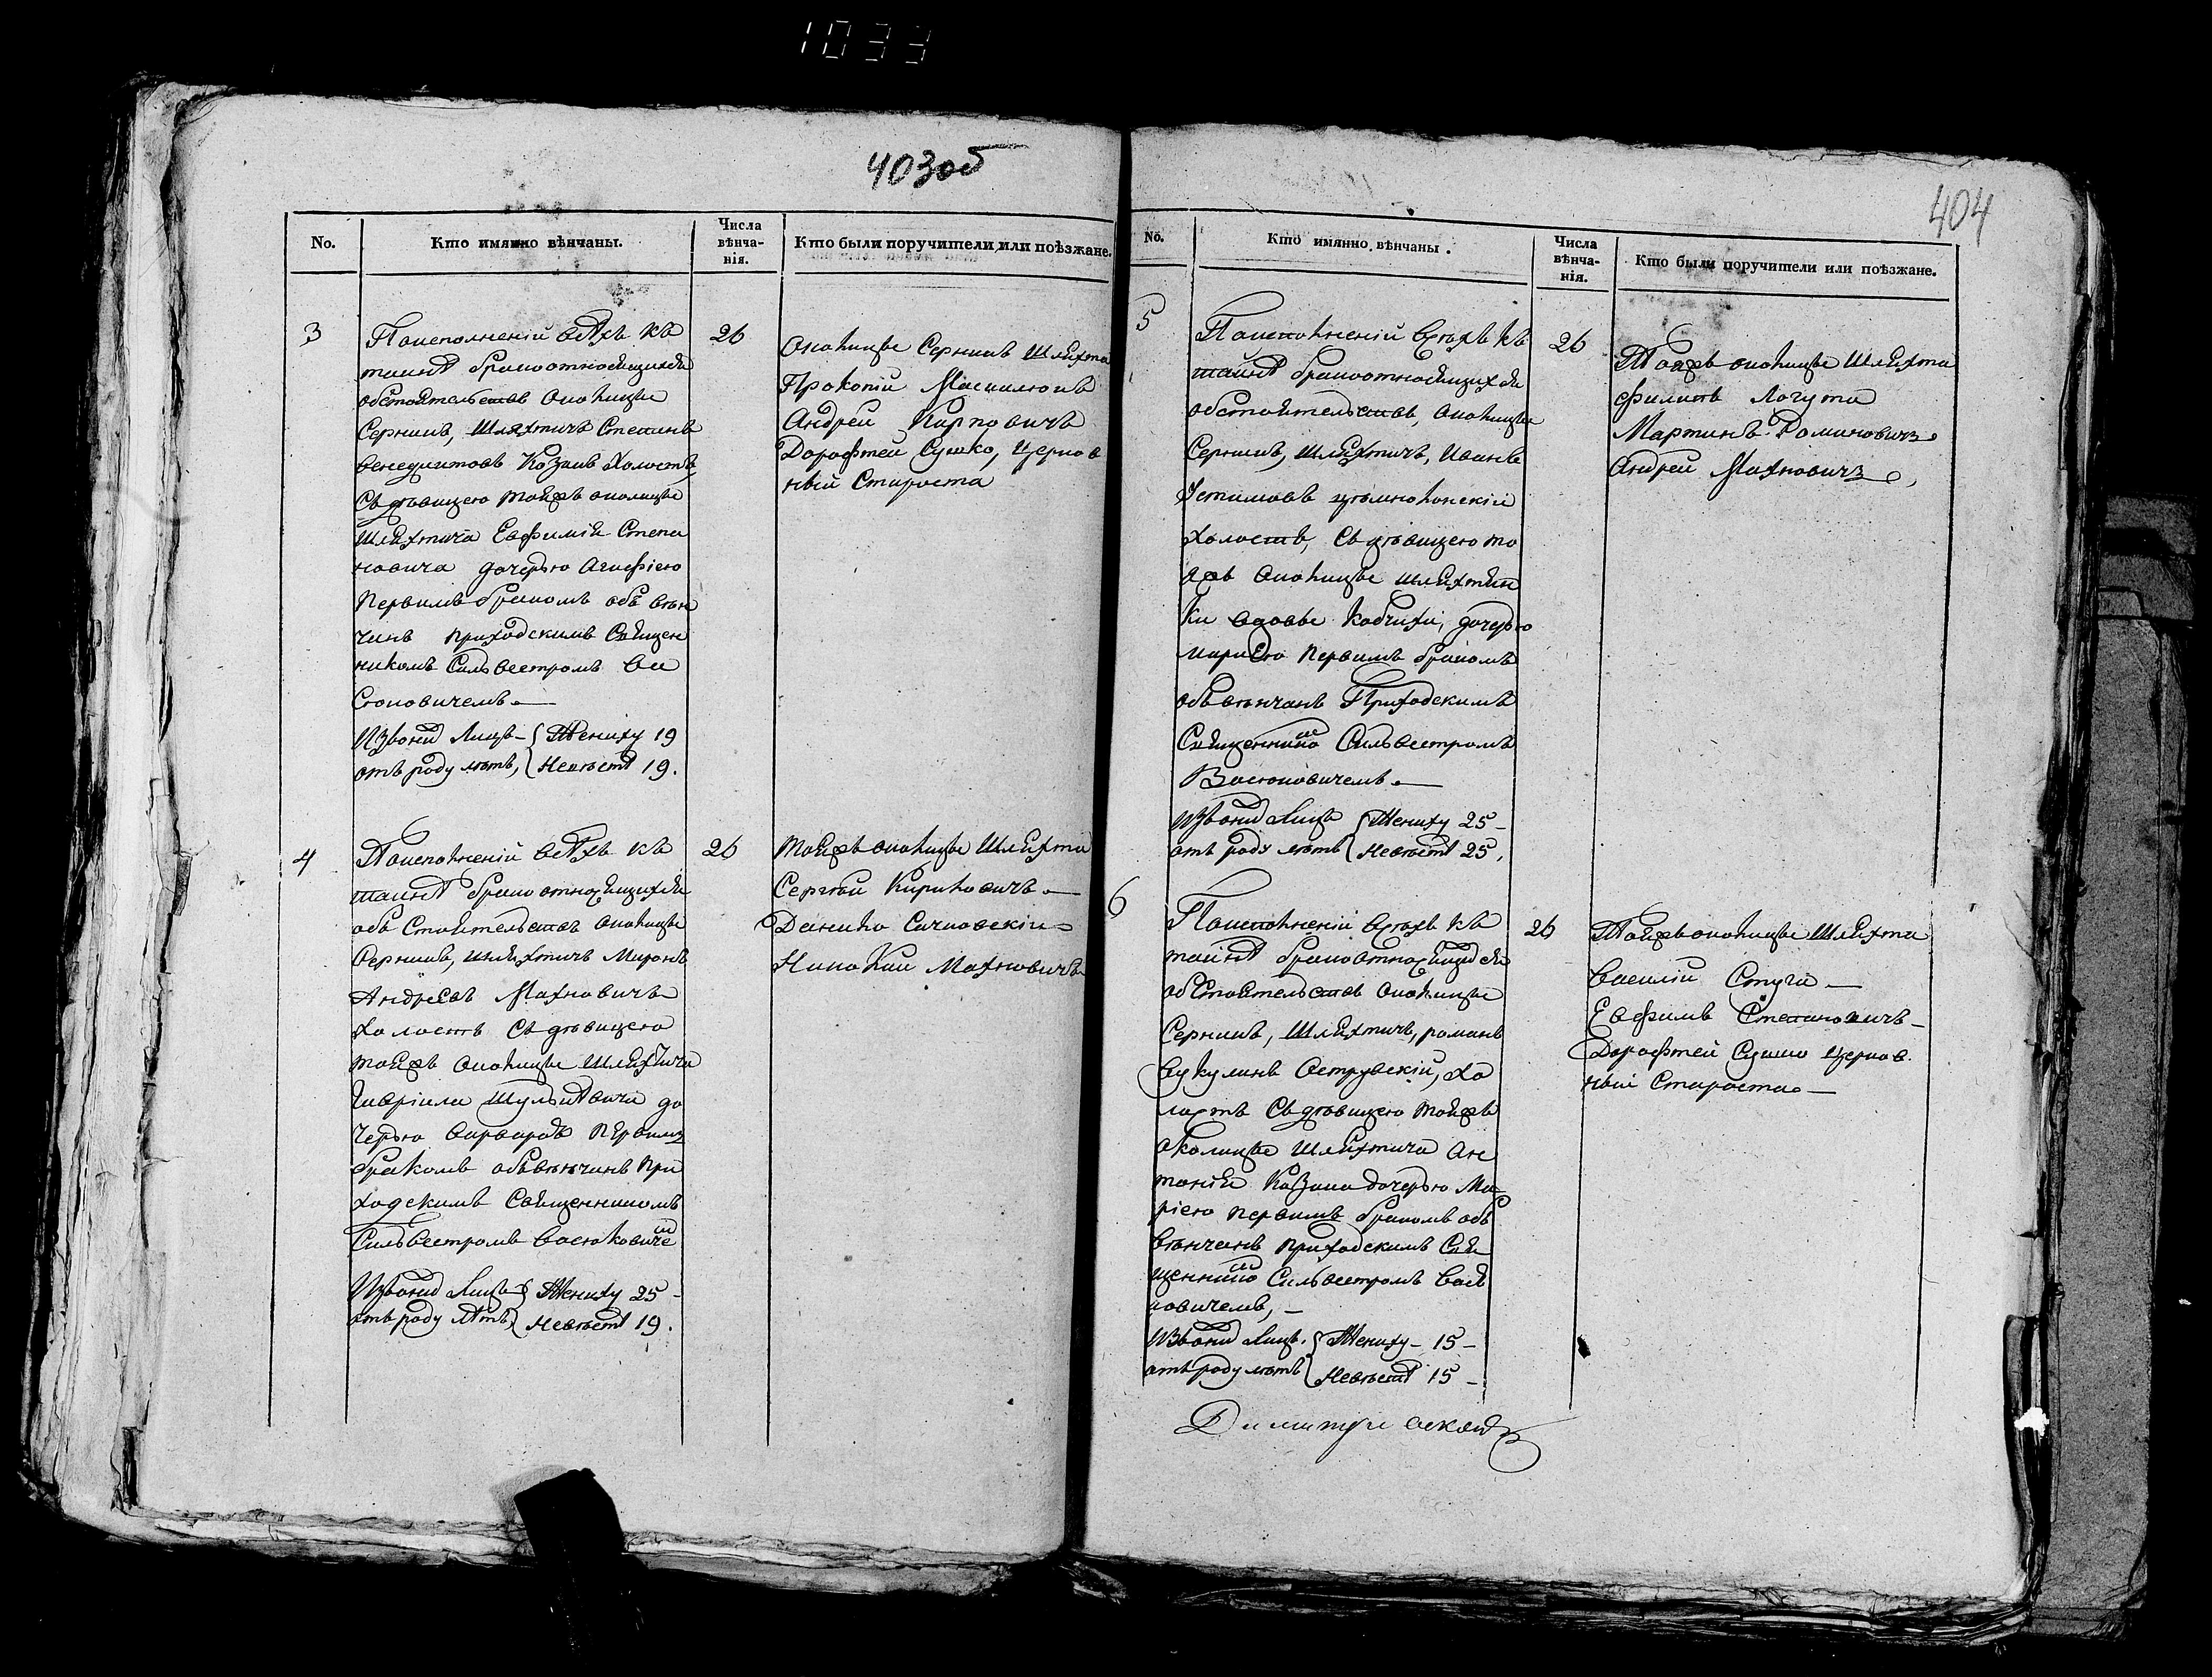 1033
403об
No.
Кто имянно вѣнчаны.
Числа
вѣнча-
нія.
Кто были поручители или поѣзжане.
3
По исполненіи всѣхъ къ
таинѣ брака относящихся
обстоятельствъ околицы
Серникъ, шляхтичъ Степанъ
Венедиктовъ Козакъ холостъ
Съ дѣвицею тойжъ околицы
шляхтича Евфимія Степа
новича дочерью Агафіею
первымъ бракомъ объ вѣн
чанъ приходскимъ Священ
никомъ Сильвестромъ Ва
сюковичемъ
Изъ воных лицъ - Жениху 19
отъ роду лѣтъ, Невѣстѣ 19.
26
Околицы Серникъ Шляхта
Прокопій
Андрей Карповичъ
Дорофтей Сушко, церков
ный Староста
4
По исполненіи всѣхъ къ
таинѣ брака относящихся
объ Стоятельствъ околицы
Серникъ, шляхтичъ Миронъ
Андреевъ Махновичъ
холостъ Съ дѣвицею
тойжъ околицы шляхтича
Гавріила дο
черью Варварою первымъ
бракомъ объвѣнчанъ при
ходскимъ Священникомъ
Сильвестромъ Васюковиче м
Изъ воных лицъ Жениху 25 -
отъ роду лѣтъ, Невѣстѣ 19.
26
Тойжъ околицы Шляхта
Сергѣй Кириловичъ
Данило
Махновичъ
404
No.
Кто имянно вѣнчаны.
Числа
вѣнча-
нія.
Кто были поручители или поѣзжане.
5
По исполненіи всѣхъ къ
таинѣ брака относящихся
обстоятельствъ, околицы
Серникъ, шляхтичъ, Иванъ
Устимовъ
холостъ, Съ дѣвицею то
яжъ околицы шляхтян
ки вдовы дочерью
Маріею первымъ бракомъ
объвѣнчанъ Приходскимъ
Священнико м Сильвестромъ
Васюковичемъ
Изъ воных лицъ Жениху 25 -
отъ роду лѣтъ Невѣстѣ 25,
26
Тояжъ околицы Шляхта
Филипъ Логута
Мартинъ Романовичъ
Андрей Махновичъ
6
По исполненіи всѣхъ къ
таинѣ брака относящихся
обстоятельствъ околицы
Серникъ, шляхтичъ, романъ
Вукулинъ Островскій, хо
лостъ Съ дѣвицею тойжъ
околицы шляхтича Ан
тонія Козака дочерью Ма
ріею первымъ бракомъ объ
вѣнчанъ приходскимъ Свя
щеннико м Сильвестромъ Васю
ковичемъ, -
Изъ воных лицъ. Жениху - 15 -
отъ роду лѣтъ Невѣстѣ 15 -
26
Тойжъ околицы Шляхта
Василій Стуга
Евфимъ Степановичъ
Дорофтей Сушко церков
ный Староста